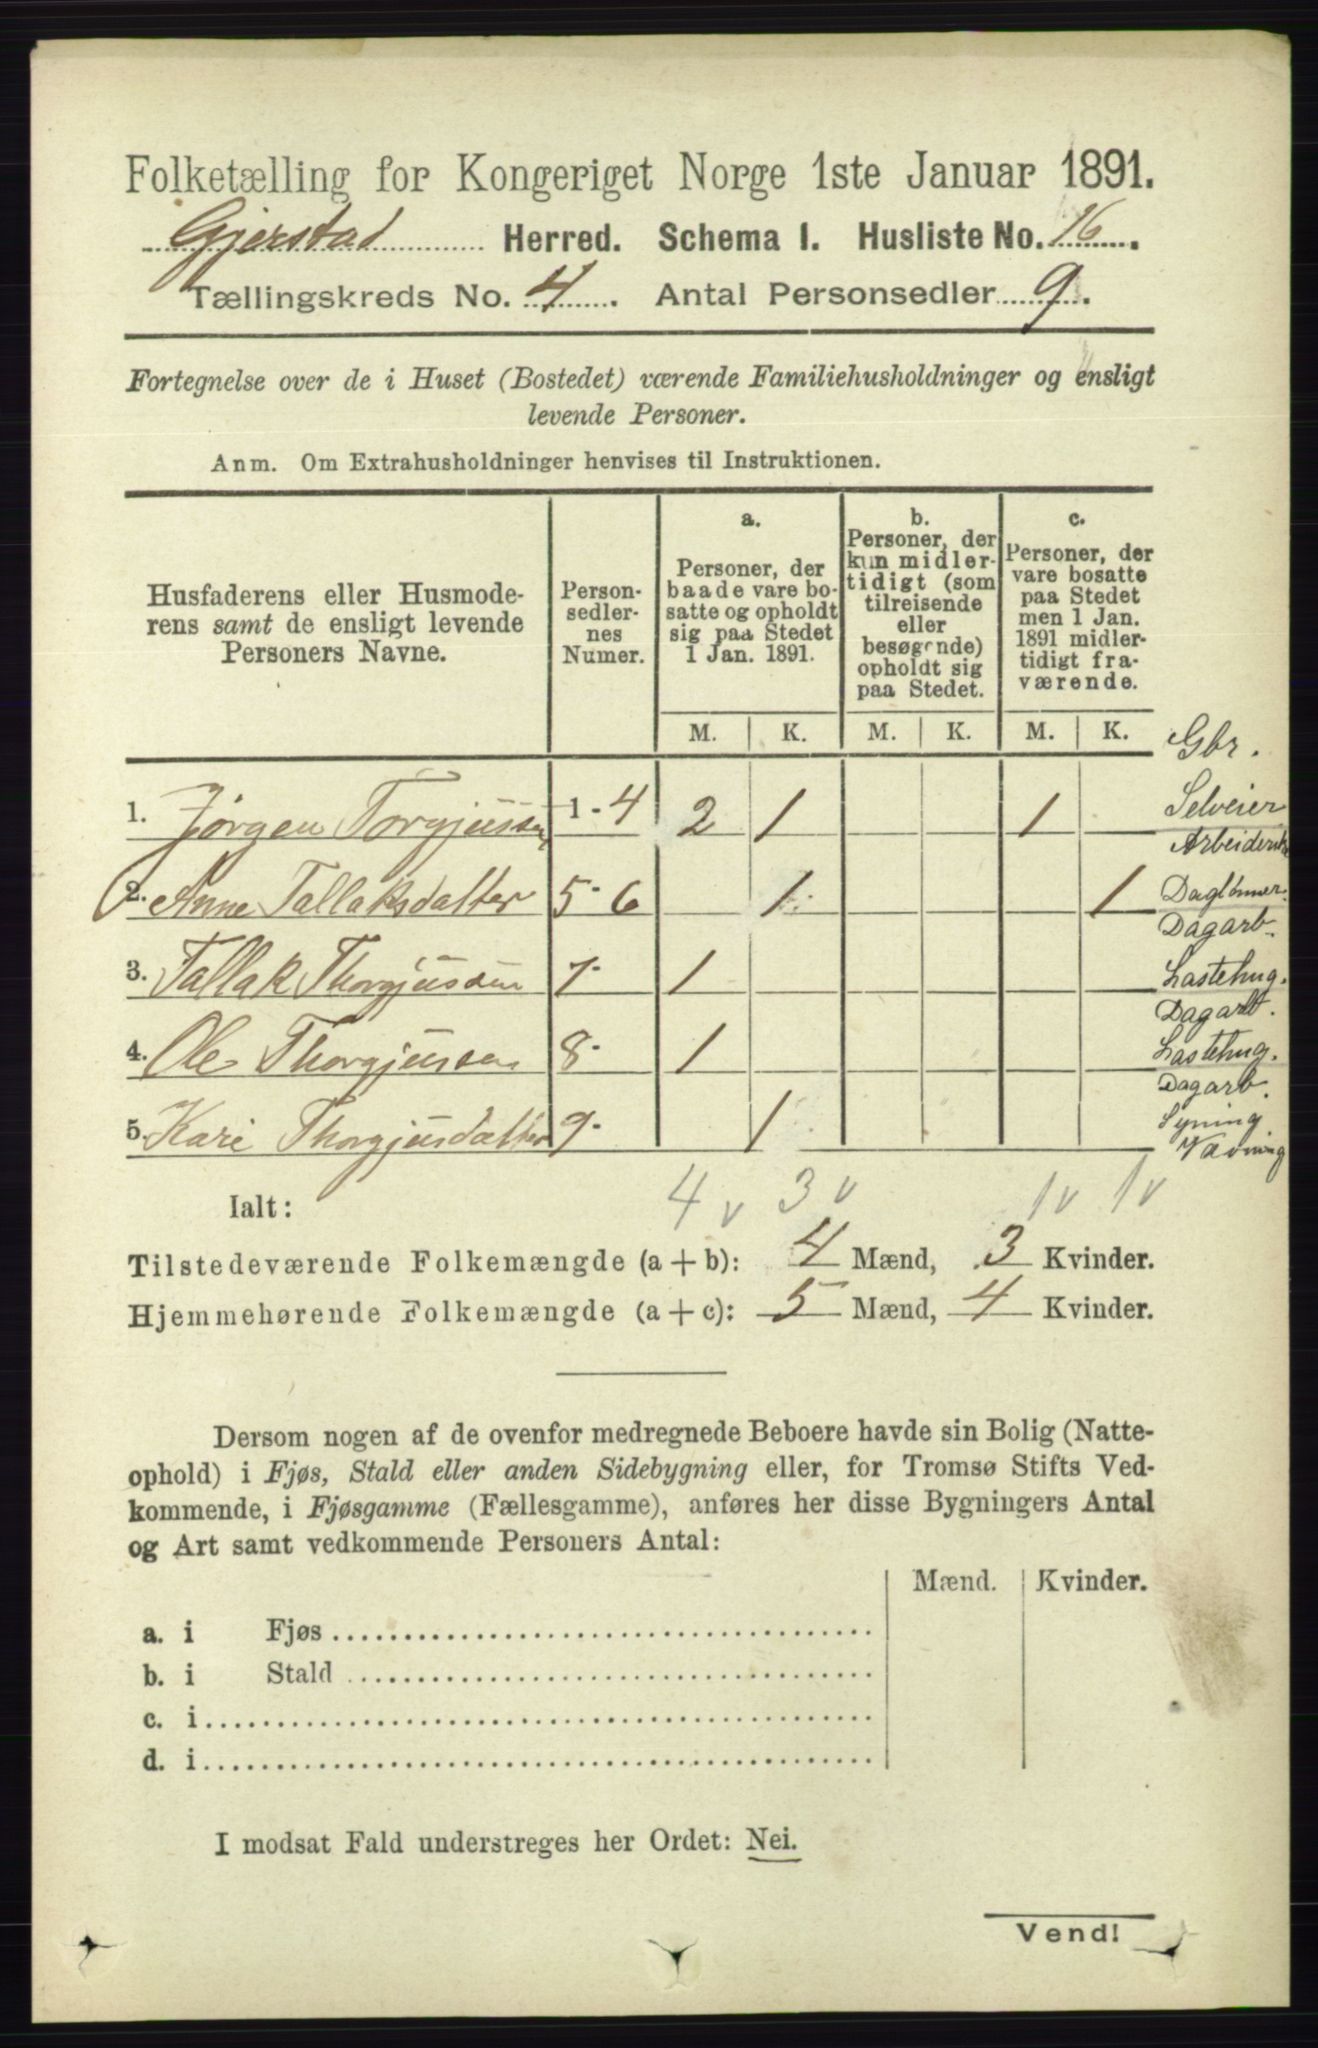 Folketælling for Kongeriget Norge 1ste Januar 1891.
Gjerstad Herred. Schema I. Husliste No. 16.
Tællingskreds No. 4. Antal Personsedler 9.
Fortegnelse over de i Huset (Bostedet) værende Familiehusholdninger og ensligt
levende Personer.
Anm. Om Extrahusholdninger henvises til Instruktionen.
Husfaderens eller Husmode-
rens samt de ensligt levende
Personers Navne.
Person-
sedler-
nes
Numer.
a.
Personer, der
baade vare bo-
satte og opholdt
sig paa Stedet
1 Jan. 1891.
b.
Personer, der
kun midler-
tidigt (som
tilreisende
eller
besøgende)
opholdt sig
paa Stedet.
c.
Personer, der
vare bosatte
paa Stedet
men 1 Jan.
1891 midler-
tidigt fra-
værende.
M. K. M. K. M. K.
Gbr.
1. Jørgen Torgjussen 1 - 4 2 1 1 Selveier
Arbeiderske
2. Anne Tallaksdatter 5 - 6 1 1 Daglønner
Dagarb.
3. Tallak Thorgjussen 7- 1 Lastehug.
Dagarb.
4. Ole Thorgjussen 8- 1 Lastehug.
Dagarb.
5. Kari Thorgjusdatter 9- 1 Syning
Vævning
Ialt: 4 v 3 v 1 v 1 v
Tilstedeværende Folkemængde (a + b): 4 Mænd, 3 Kvinder.
Hjemmehørende Folkemængde (a + c): 5 Mænd, 4 Kvinder.
Dersom nogen af de ovenfor medregnede Beboere havde sin Bolig (Natte-
ophold) i Fjøs, Stald eller anden Sidebygning eller, for Tromsø Stifts Ved-
kommende, i Fjøsgamme (Fællesgamme), anføres her disse Bygningers Antal
og Art samt vedkommende Personers Antal:
Mænd. Kvinder.
a. i Fjøs
b. i Stald
c. i
d. i
I modsat Fald understreges her Ordet: Nei.
Vend!